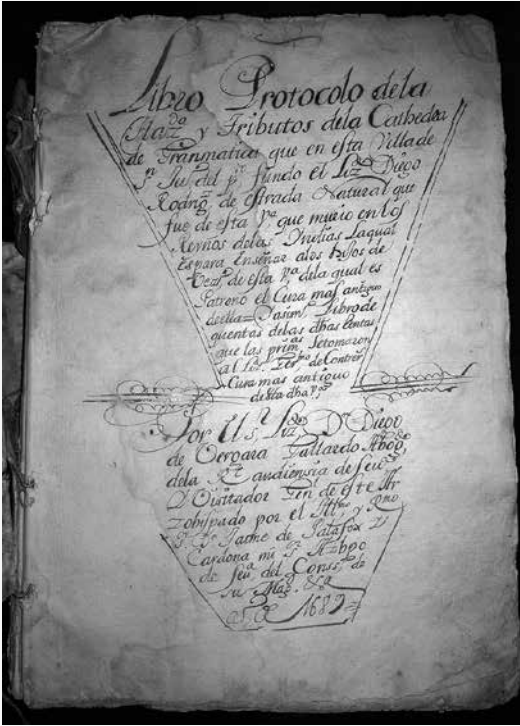 Libro Protocolo dela
Haz.da y Tributos dela Cathedra
de Granmatica que en esta Villa de
fundo el Liz.do Diego
Rodrig.z de estrada Natural que
fue de esta v.a que murio en los
Reinos de las Indias Laqual
Espara Enseñar a los hijos de
Vezs.o de esta v.a dela qual es
Patrono el Cura mas antiguo
de ella= Y asim.o Libro de
quentas de las dhas Rentas
que las prim.as Setomaron
al L.do de Contrer.s
Cura mas antiguo
desta dha v.a
Por El S.r Liz.do D.n Diego
de Vergara Gallardo Abog.do
dela R.l audiensia de Seu.a
Y Visitador Gen.l de este Ar
zobispado por el Ill.mo y R.mo
S.r D.n Jaime de Palafox y
Cardona mi S.r Azbpo
de Seu.a del Cons.o de
su Mag.d &.a
1689